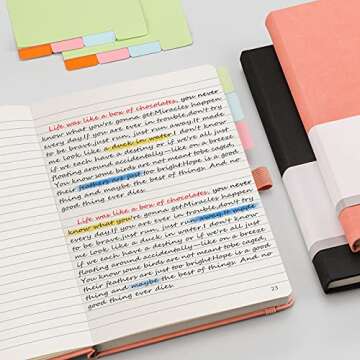 Life was like a box of chocolates, you never
know what you're gonna get.Miracles happen
every day.If you are ever in trouble,don't try
to be brave,just run, just run away.It made
me look like a duck in water.I don't know
if we each have a destiny, or if we're all just
floating around accidentally--like on a breeze.
You know some birds are not meant tobe caged,
their feathers are just too bright.Hope is a good
thing and maybe the best of things. And no
good thing ever dies.
Life was like a box of chocolates, you never
know what you're gonna get.Miracles happen
every day.If you are ever in trouble,don't try
to be brave,just run, just run away.It made
me look like a duck in water.I don't know
if we each have a destiny, or if we're all just
floating around accidentally--like on a breeze.
You know some birds are not meant tobe caged,
their feathers are just too bright.Hope is a good
thing and maybe the best of things. And no
good thing ever dies.
23